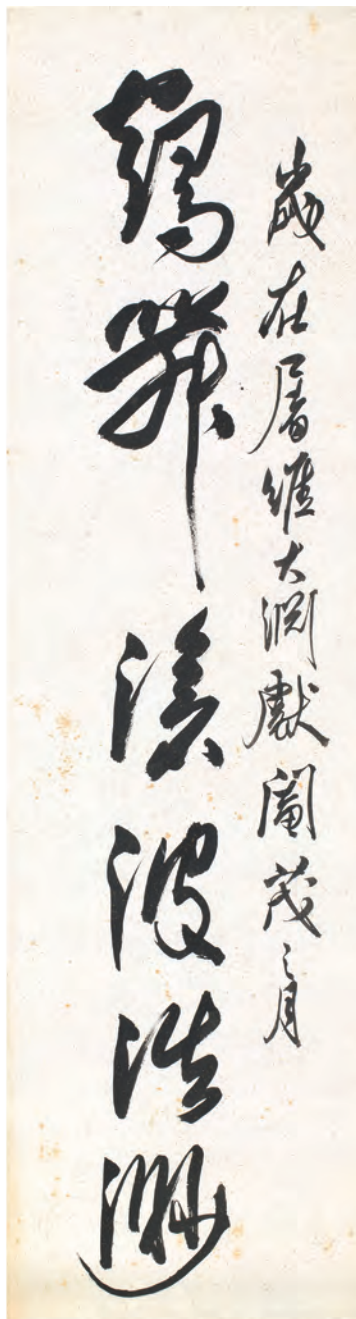 歲在屠維大淵獻閹茂之月
舞波浩